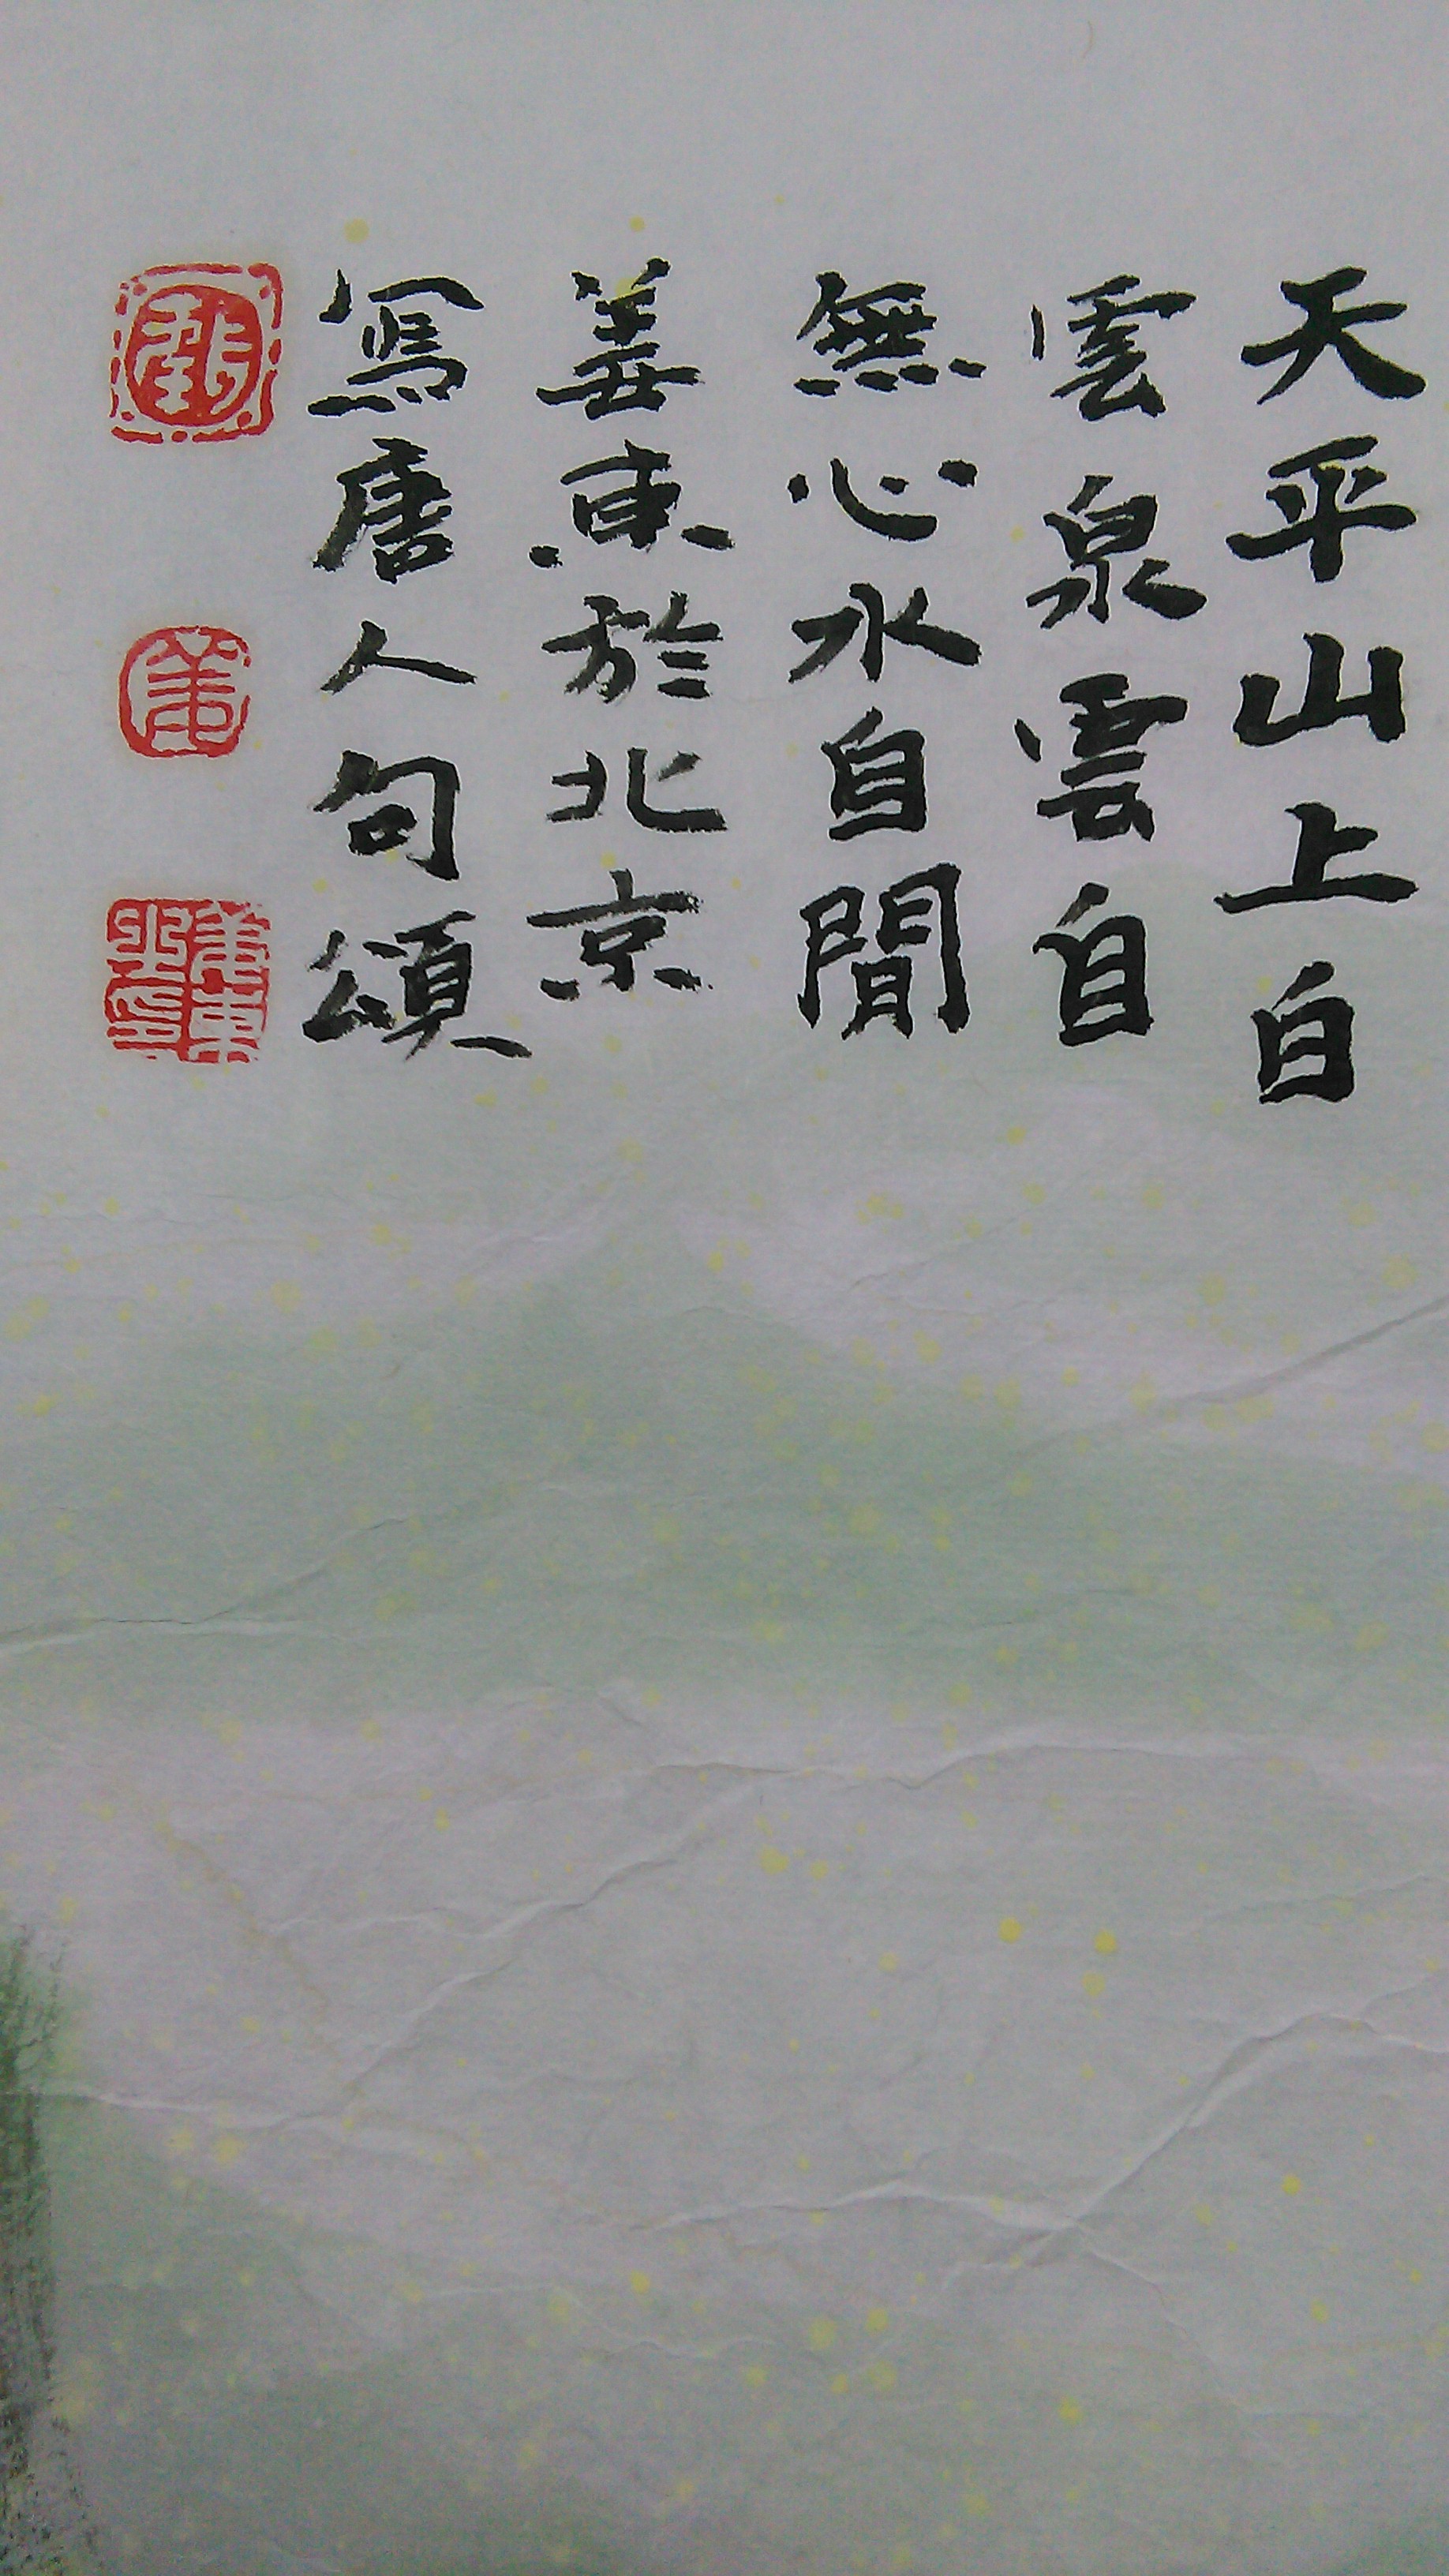 天平山上白
雲泉雲自
無心水自閒
姜東於北京
寫唐人句頌
姜